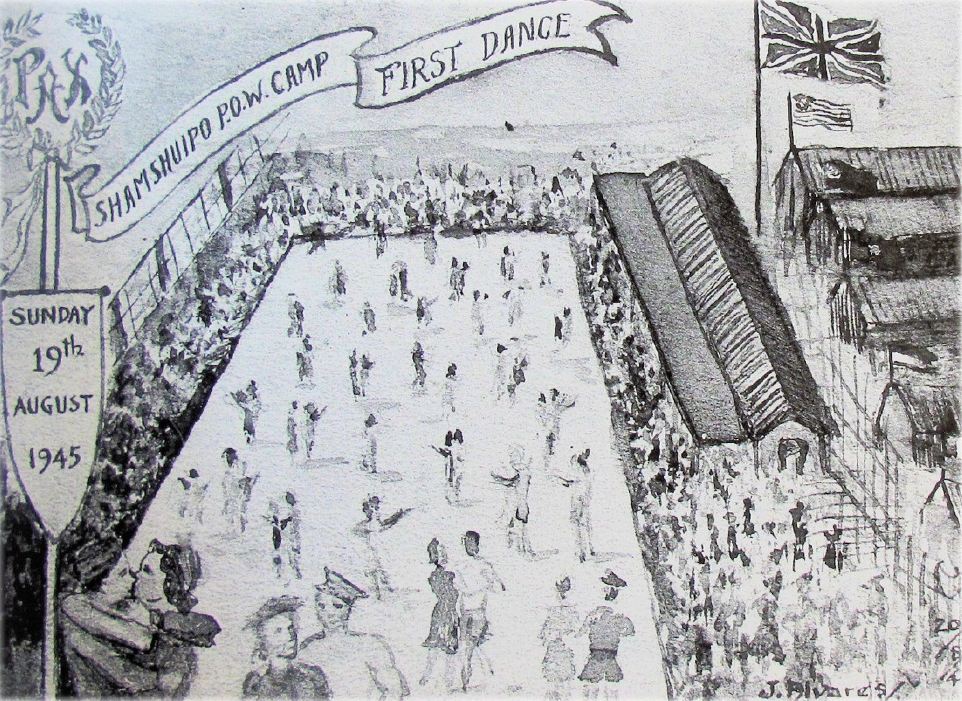 PAX
SHAMSHUIPO P.O.W. CAMP
FIRST DANCE
SUNDAY
19th
AUGUST
1945
J. Alvares